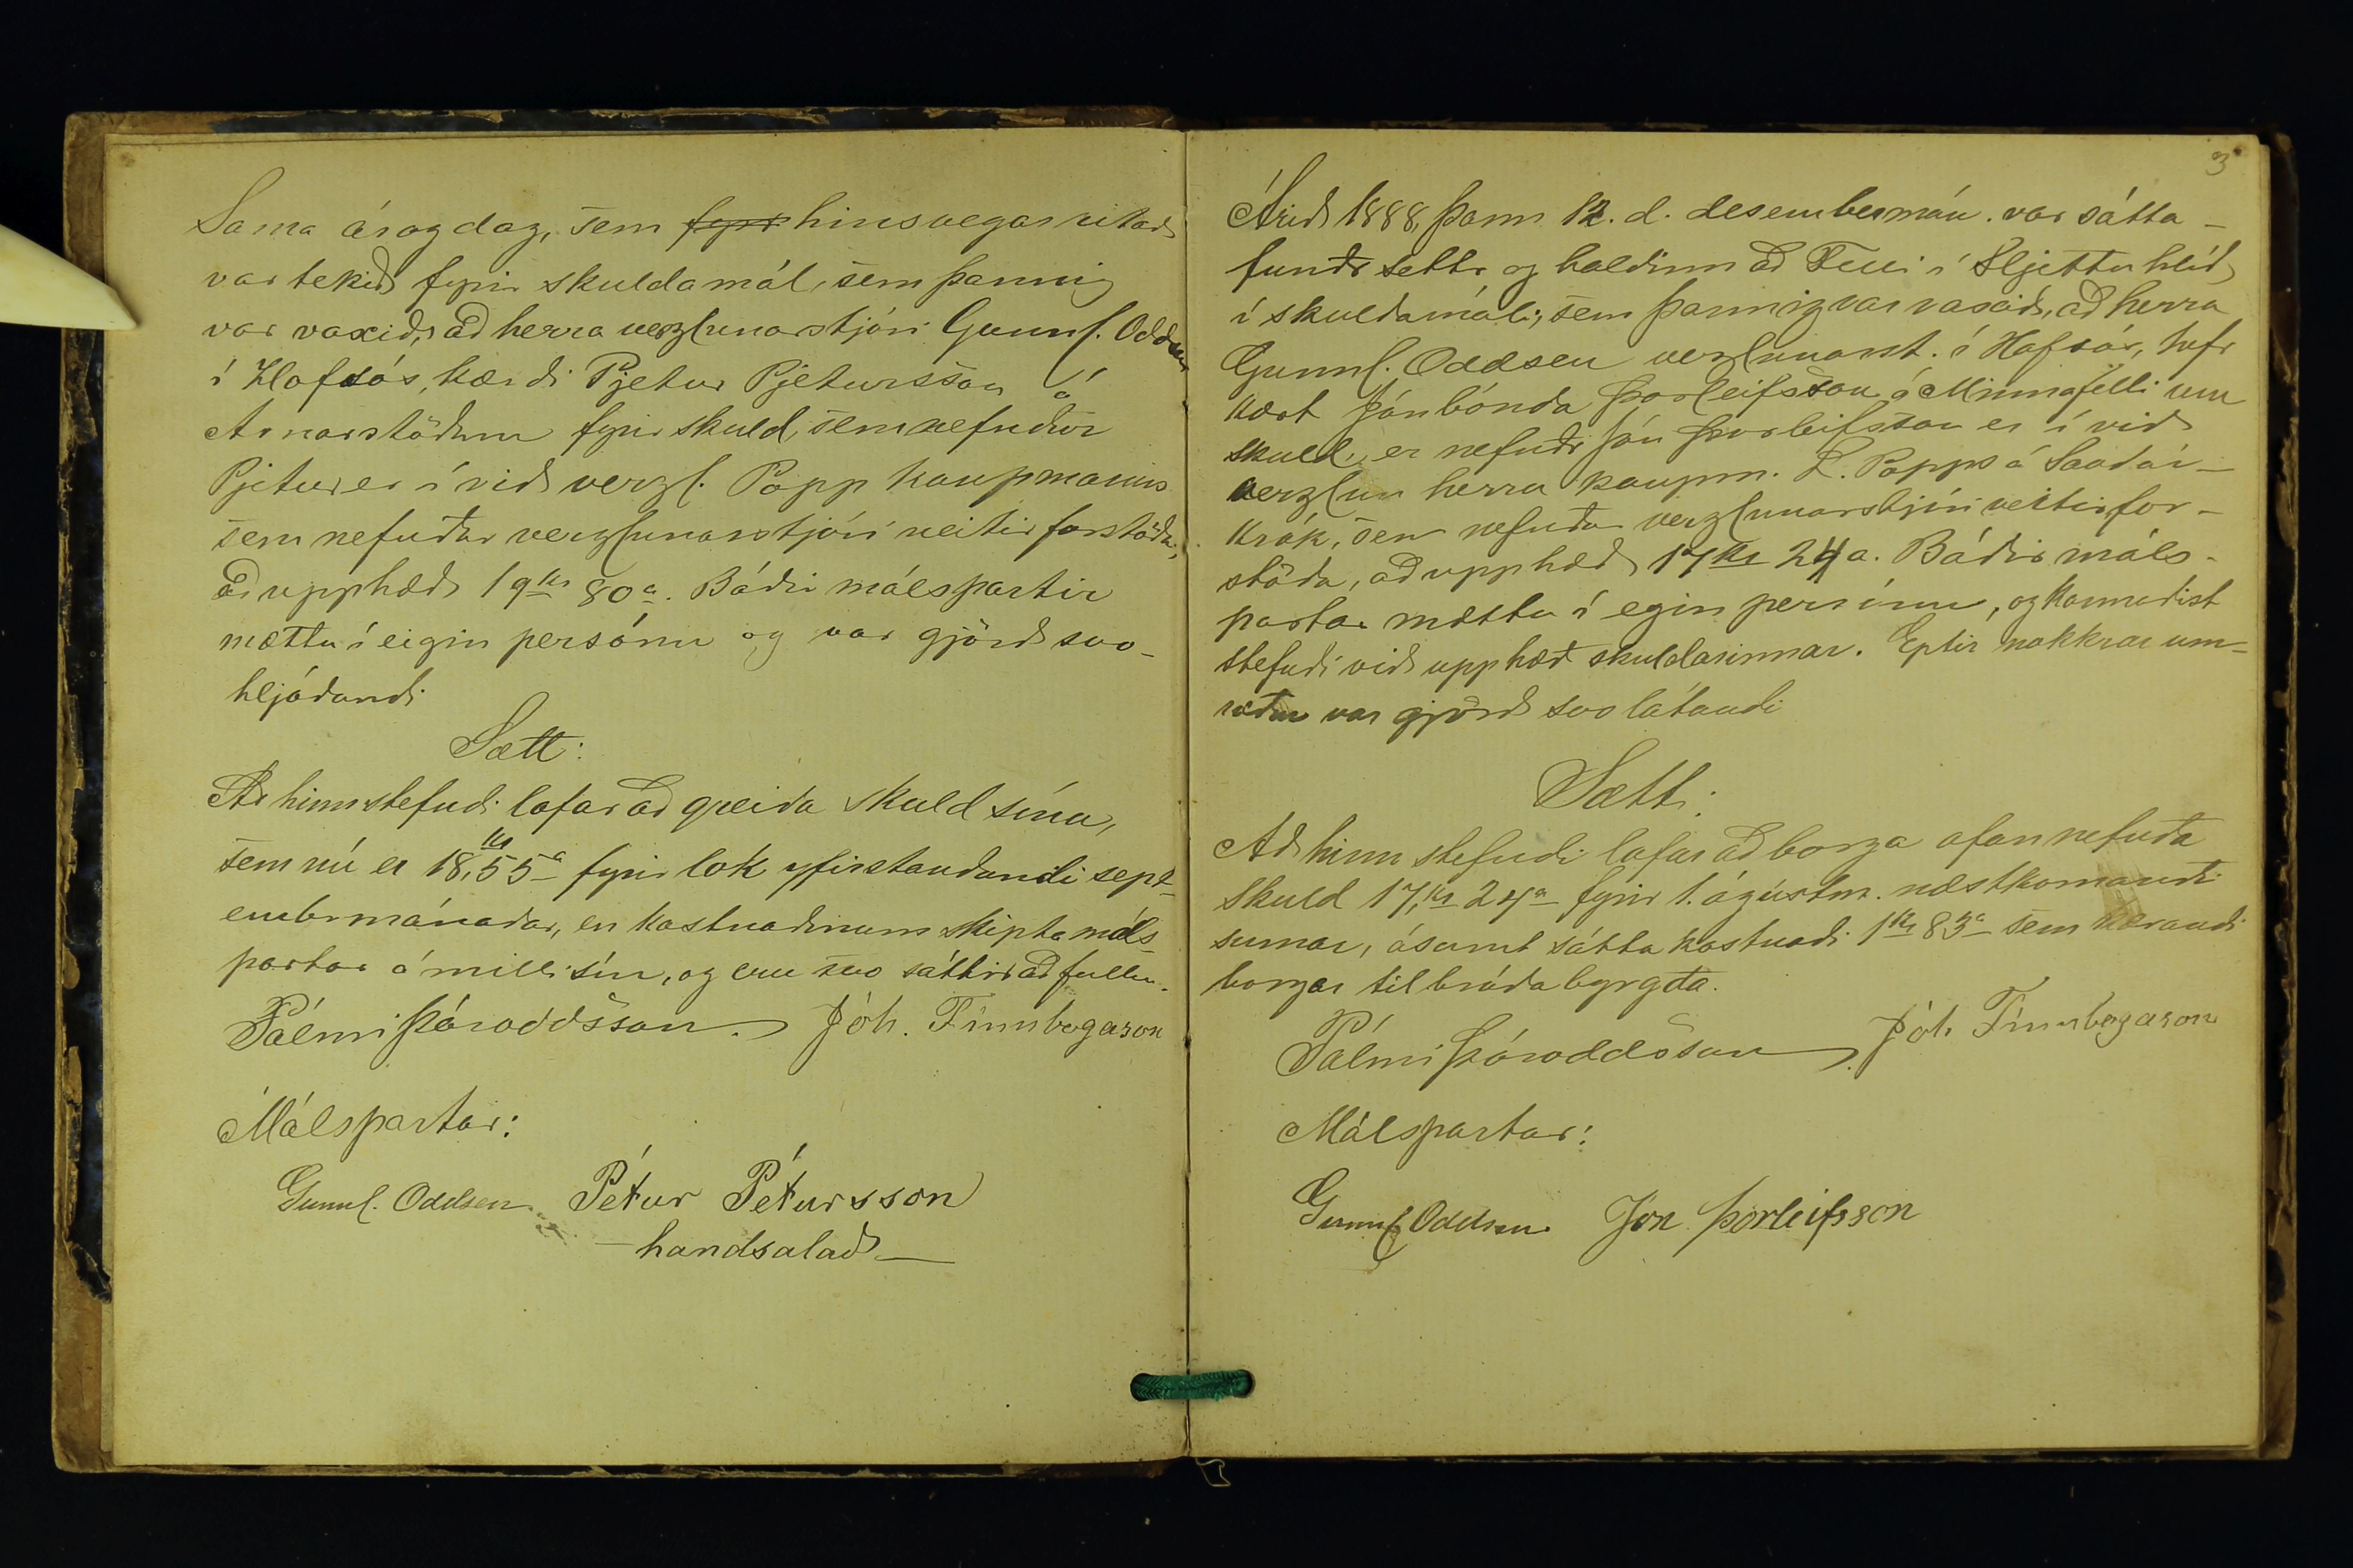 Sama ár og dag, sem fyr hinsvegar ritað,
var tekið fyrir skuldamál, sem þannig
var vaxið, að herra verzlunarstjóri Gunnl. Oddsen
í Hofsós, kærði Pjetur Pjetursson á
Arnarstöðum fyrir skuld, sem nefndur
Pjetur er í við verzl. Popp kaupmanns
sem nefndur verzlunarstjóri veitir forstöðu,
að upphæð 19 kr 80 a. Báðir málspartir
mættu í eigin persónu og var gjörð svo-
hljóðandi
Sætt:
Að hinn stefndi lofar að greiða skuld sína,
sem nú er 18,kr 55 a fyrir lok yfirstandandi sept-
embermánaðar, en kostnaðinum skipta máls-
partar á milli sín, og eru svo sáttir að fullu.
Pálmi Þóroddsson. Jóh. Finnbogason
Málspartar:
Gunnl. Oddsen. Pétur Pétursson
— handsalað —
3
Árið 1888, þann 12. d. desembermán. var sátta-
fundr settr og haldinn að Felli í Sljettuhlíð,
í skuldamáli, sem þannig var vaxið, að herra
Gunnl. Oddsen verzlunarst. í Hofsós, hefr
kært Jón bónda Þorleifsson á Minnafelli um
skuld, er nefndr Jón Þorleifsson er í við
verzlun herra kaupm. L. Popps á Sauðár-
krók, sem nefndur verzlunarstjóri veitir for-
stöðu, að upphæð 17 kr 24 a. Báðir máls-
partar mættu í egin persónu, og kannaðist
stefndi við upphæð skuldarinnar. Eptir nokkrar um-
ræður var gjörð svo látandi
Sætt:
Að hinn stefndi lofar að borga ofannefnda
skuld 17, kr 24 a fyrir 1. ágústm. næstkomandi
sumar, ásamt sáttakostnaði 1 kr 83 a sem kærandi
borgar til bráðabyrgða.
Pálmi Þóroddsson. Jóh Finnbogason
Málspartar:
Gunnl Oddsen. Jón Þorleifsson